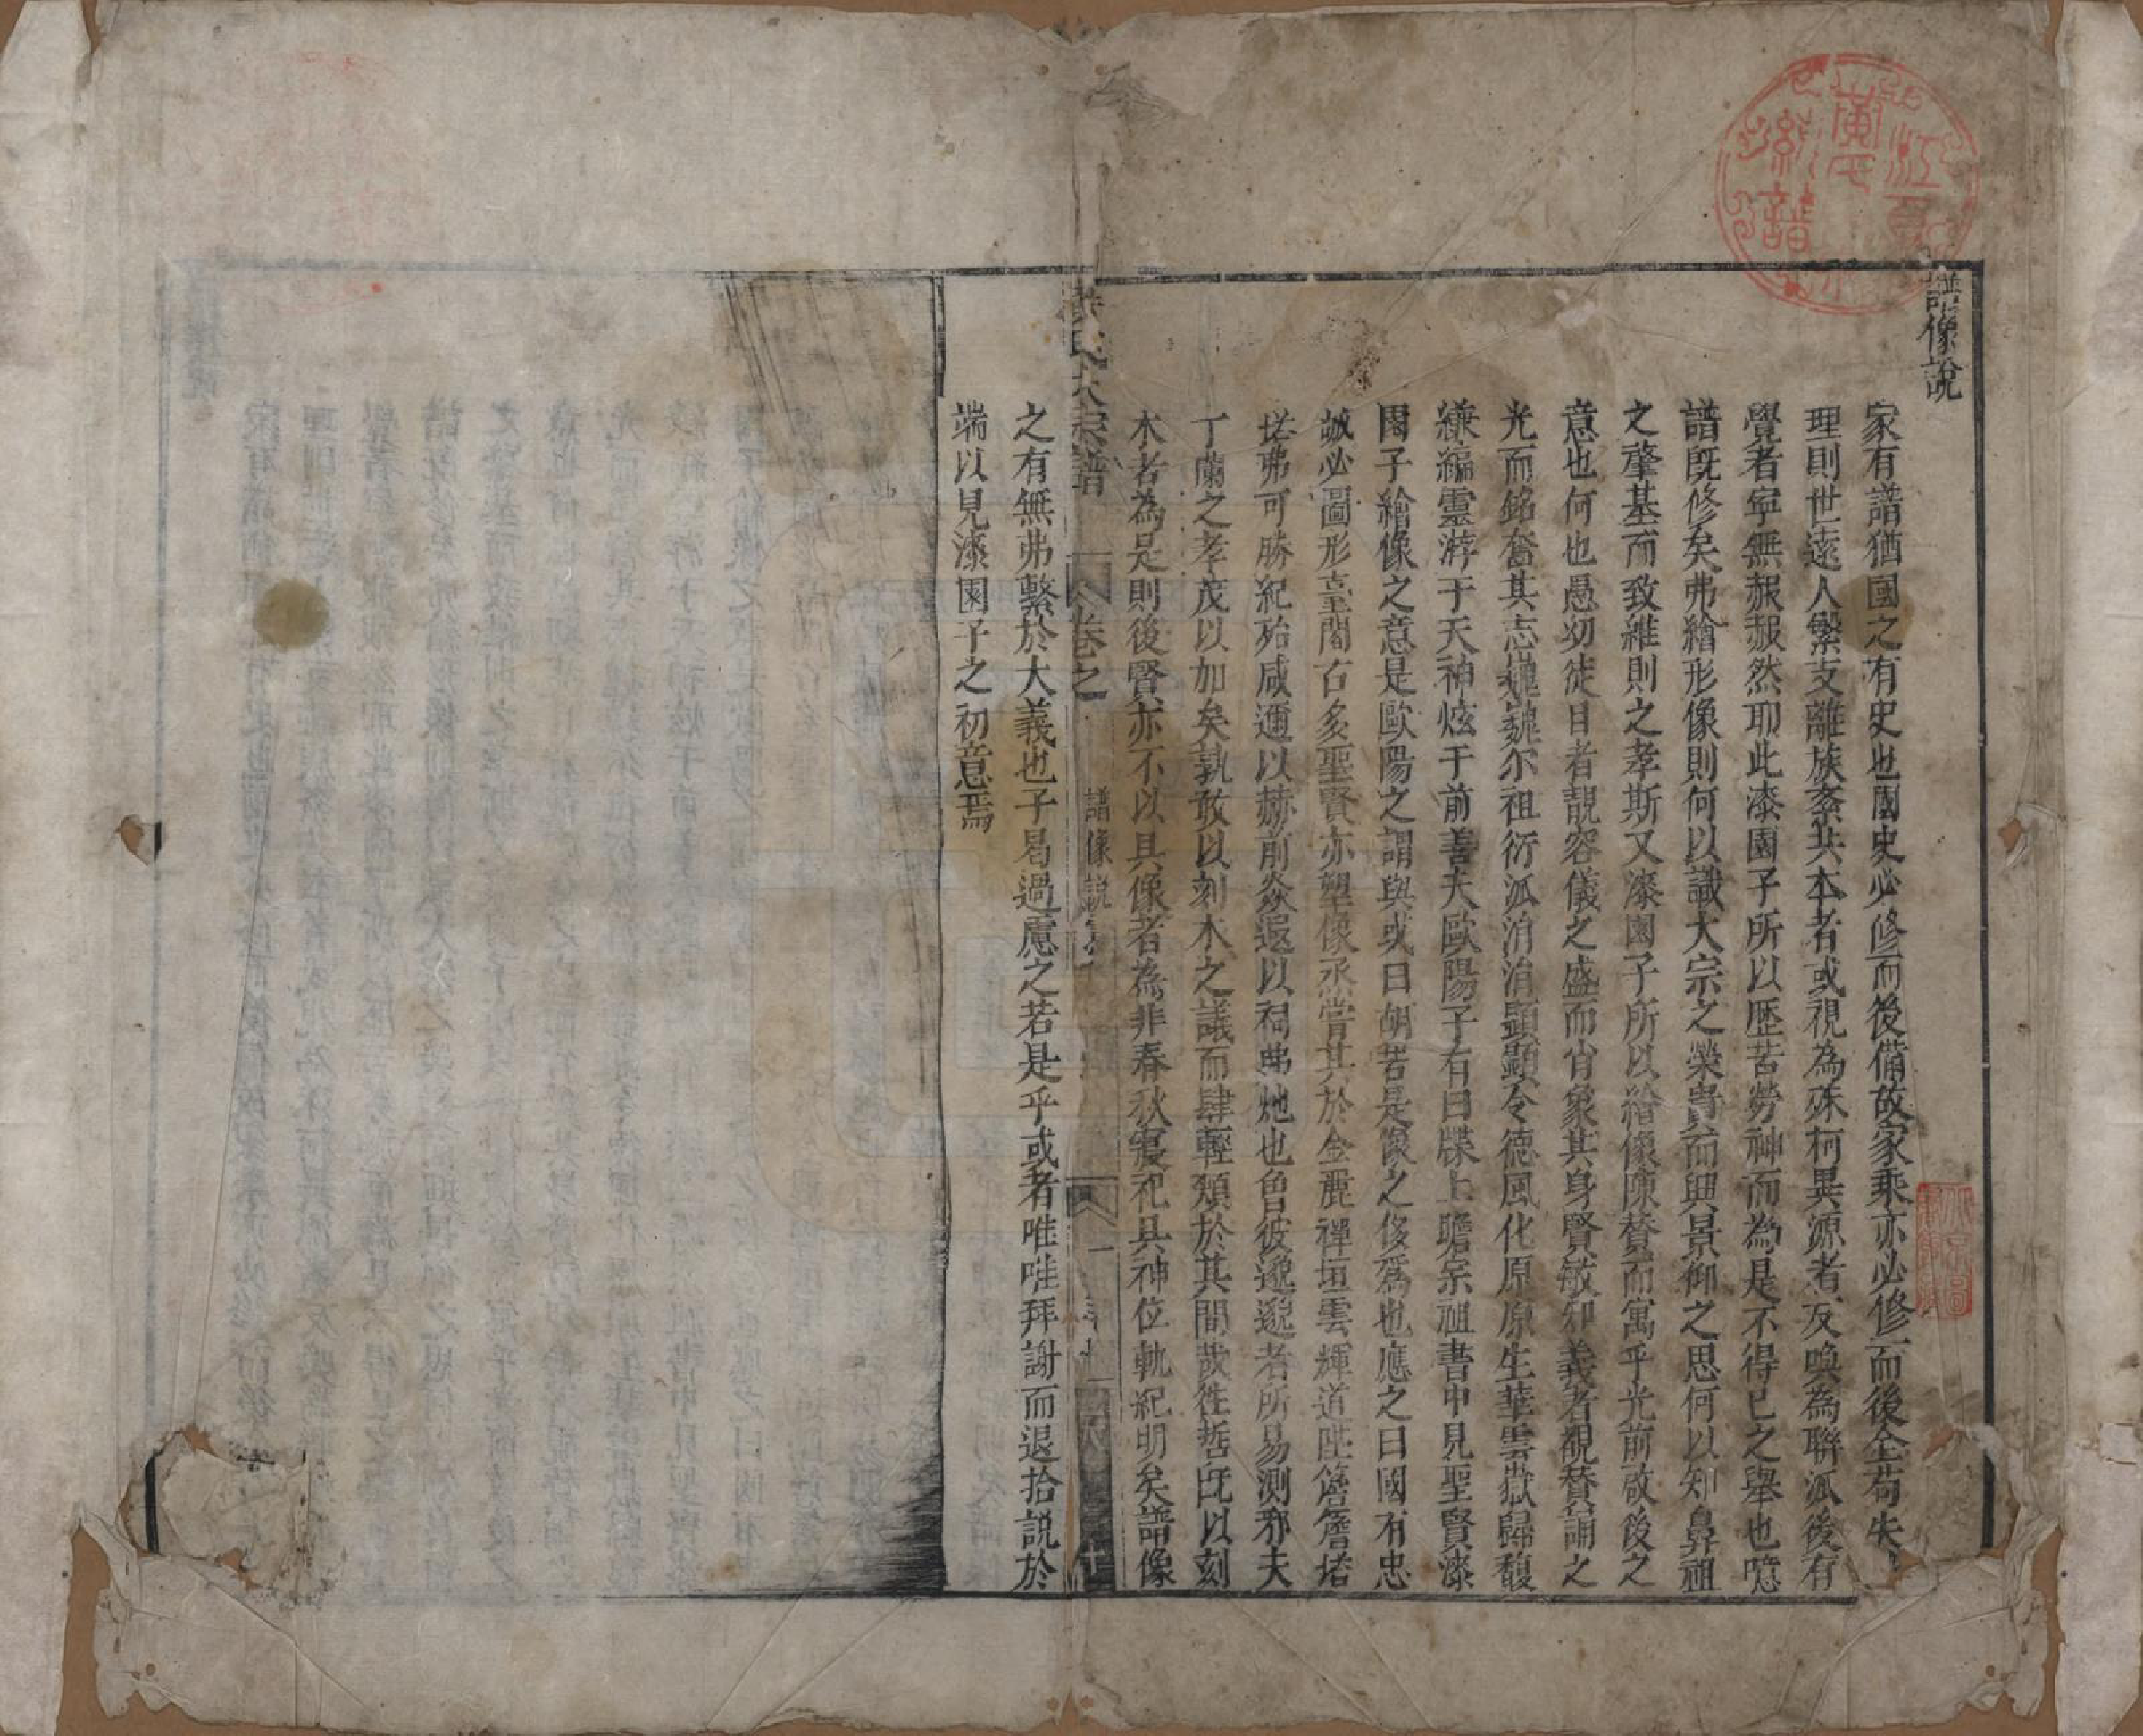 譜像說
家有譜猶國之有史也國史必修而後備故家乘亦必修而後全苟失
理則世遠人繁支離族紊共本者或視為殊柯異源者反喚為聯派後有
覺者寧無赧赧然耶此漆園子所以歷苦勞神而為是不得已之舉也噫
譜旣修矣弗繪形像則何以識大宗之榮貴而興景仰之思何以知鼻祖
之肇基而致維則之孝斯又漆園子所以繪像陳贊而寓乎光前啟後之
意也何也愚幼徒目者靚容儀之盛而肖象其身賢敏知義者覩贊誦之
光而銘奮其志巍巍尔祖衍派涓涓顯顯令德風化原原生華雲嶽歸馥
縑緗靈游于天神炫于前善夫歐陽子有曰牒上瞻宗祖書中見聖賢漆
園子繪像之意是歐陽之謂與或曰胡苦是像之侈為也應之曰國有忠
誠必圖形臺閣古多聖賢亦塑像烝嘗其於金麗禪垣雲輝道陛簷簷塔
塔弗可勝紀殆咸邇以赫前炎遐以祠弗灺也曾彼邈邈者所易測邪夫
丁蘭之孝茂以加矣孰敢以刻木之議而肆輕頫於其間哉徃哲旣以刻
木者為是則後賢亦不以具像者為非春秋寢祀具神位軌紀明矣譜像
之有無弗繫於大義也子曷過慮之若是乎或者唯唯拜謝而退拾說於
端以見漆園子之初意焉
大宗譜
卷之
譜像說
十